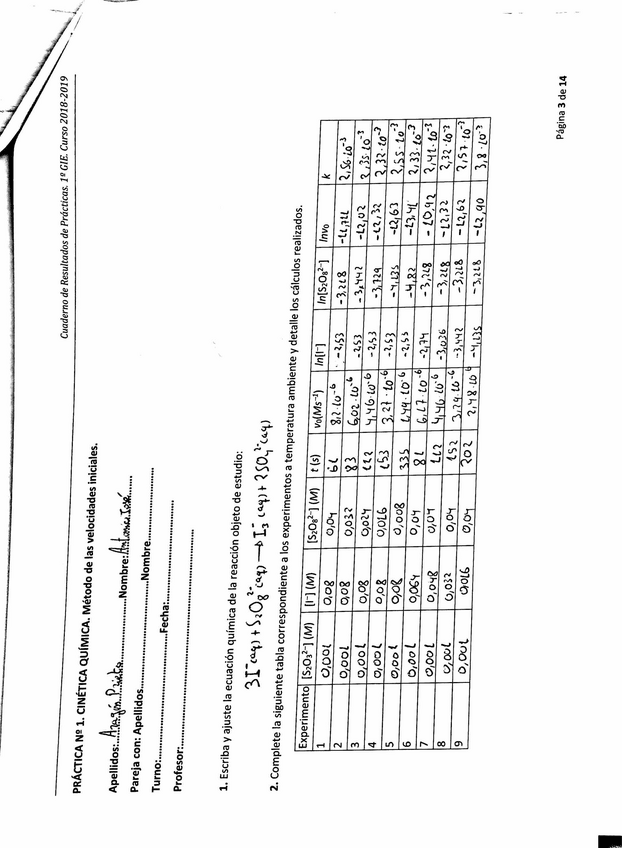 Cuaderno de Resultados de Prácticas. 1º GIE. Curso 2018-2019
PRÁCTICA Nº 1. CINÉTICA QUÍMICA. Método de las velocidades iniciales.
Apellidos: Aragón Prieto Nombre: Antonio José
Pareja con: Apellidos Nombre
Turno: Fecha:
Profesor:
1. Escriba y ajuste la ecuación química de la reacción objeto de estudio:
3I⁻(aq) + S₂O₈²⁻(aq) → I₃⁻(aq) + 2SO₄²⁻(aq)
2. Complete la siguiente tabla correspondiente a los experimentos a temperatura ambiente y detalle los cálculos realizados.
Experimento [S₂O₃²⁻] (M) [I⁻] (M) [S₂O₈²⁻] (M) t (s) v₀(Ms⁻¹) ln[I⁻] ln[S₂O₈²⁻] lnv₀ k
1 0,001 0,08 0,04 61 8,2·10⁻⁶ -2,53 -3,218 2,56·10⁻³
2 0,001 0,08 0,032 83 6,02·10⁻⁶ -2,53 -3,442 -12,02 2,35·10⁻³
3 0,001 0,08 0,024 112 4,46·10⁻⁶ -2,53 -3,729 -12,32 2,32·10⁻³
4 0,001 0,08 0,016 153 3,27·10⁻⁶ -2,53 -4,135 -12,63 2,55·10⁻³
5 0,001 0,08 0,008 335 1,49·10⁻⁶ -2,53 -4,82 -13,41 2,33·10⁻³
6 0,001 0,064 0,04 81 6,17·10⁻⁶ -2,74 -3,218 2,41·10⁻³
7 0,001 0,048 0,04 112 4,46·10⁻⁶ -3,036 -3,218 -12,32 2,32·10⁻³
8 0,001 0,032 0,04 152 3,29·10⁻⁶ -3,442 -3,218 -12,62 2,57·10⁻³
9 0,001 0,016 0,04 202 2,48·10⁻⁶ -4,135 -3,218 -12,90 3,8·10⁻³
Página 3 de 14